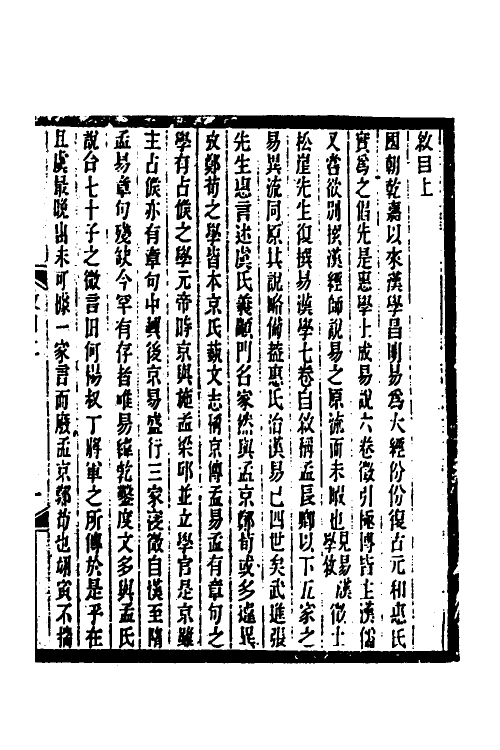 敘目上
國朝乾嘉以來漢學昌明易為大經份份復古元和惠氏
實為之倡先是惠學士成易說六卷徵引極博皆主漢儒
又嘗欲別撰漢經師說易之原流而未暇也見易漢學敘徵士
松崖先生復撰易漢學七卷自敘稱孟長卿以下五家之
易異流同原其說略備蓋惠氏治漢易已四世矣武進張
先生惠言述虞氏義顓門名家然與孟京鄭荀或多違異
攷鄭荀之學皆本京氏蓺文志稱京傳孟易孟有章句之
學有占候之學元帝時京與施孟梁邱並立學官是京雖
主占候亦有章句中興後京易盛行三家寖微自漢至隋
孟易章句殘缺今罕有存者唯易緯乾鑿度文多與孟氏
說合七十子之微言田何楊叔丁將軍之所傳於是乎在
且虞最晚出未可據一家言而廢孟京鄭荀也胡寅不揣